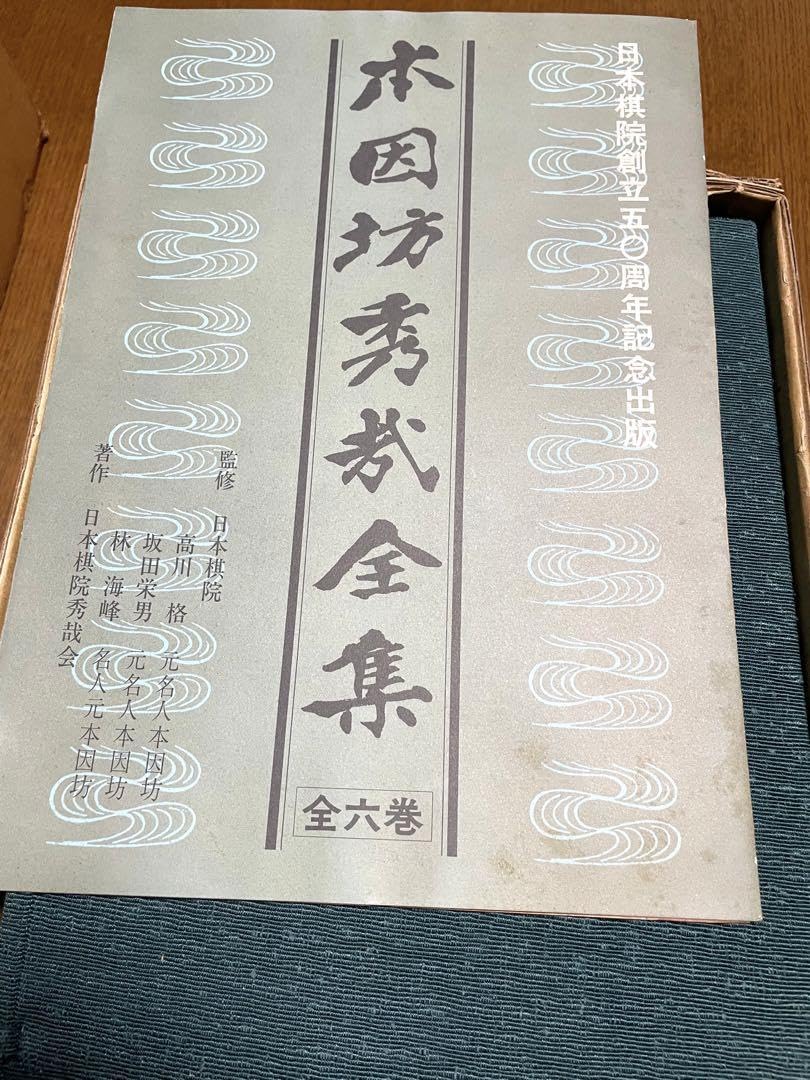 日本棋院創立五〇周年記念出版
本因坊秀哉全集
全六巻
監修 日本棋院
高川 格 元名人本因坊
坂田栄男 元名人本因坊
林 海峰 名人元本因坊
著作 日本棋院秀哉会